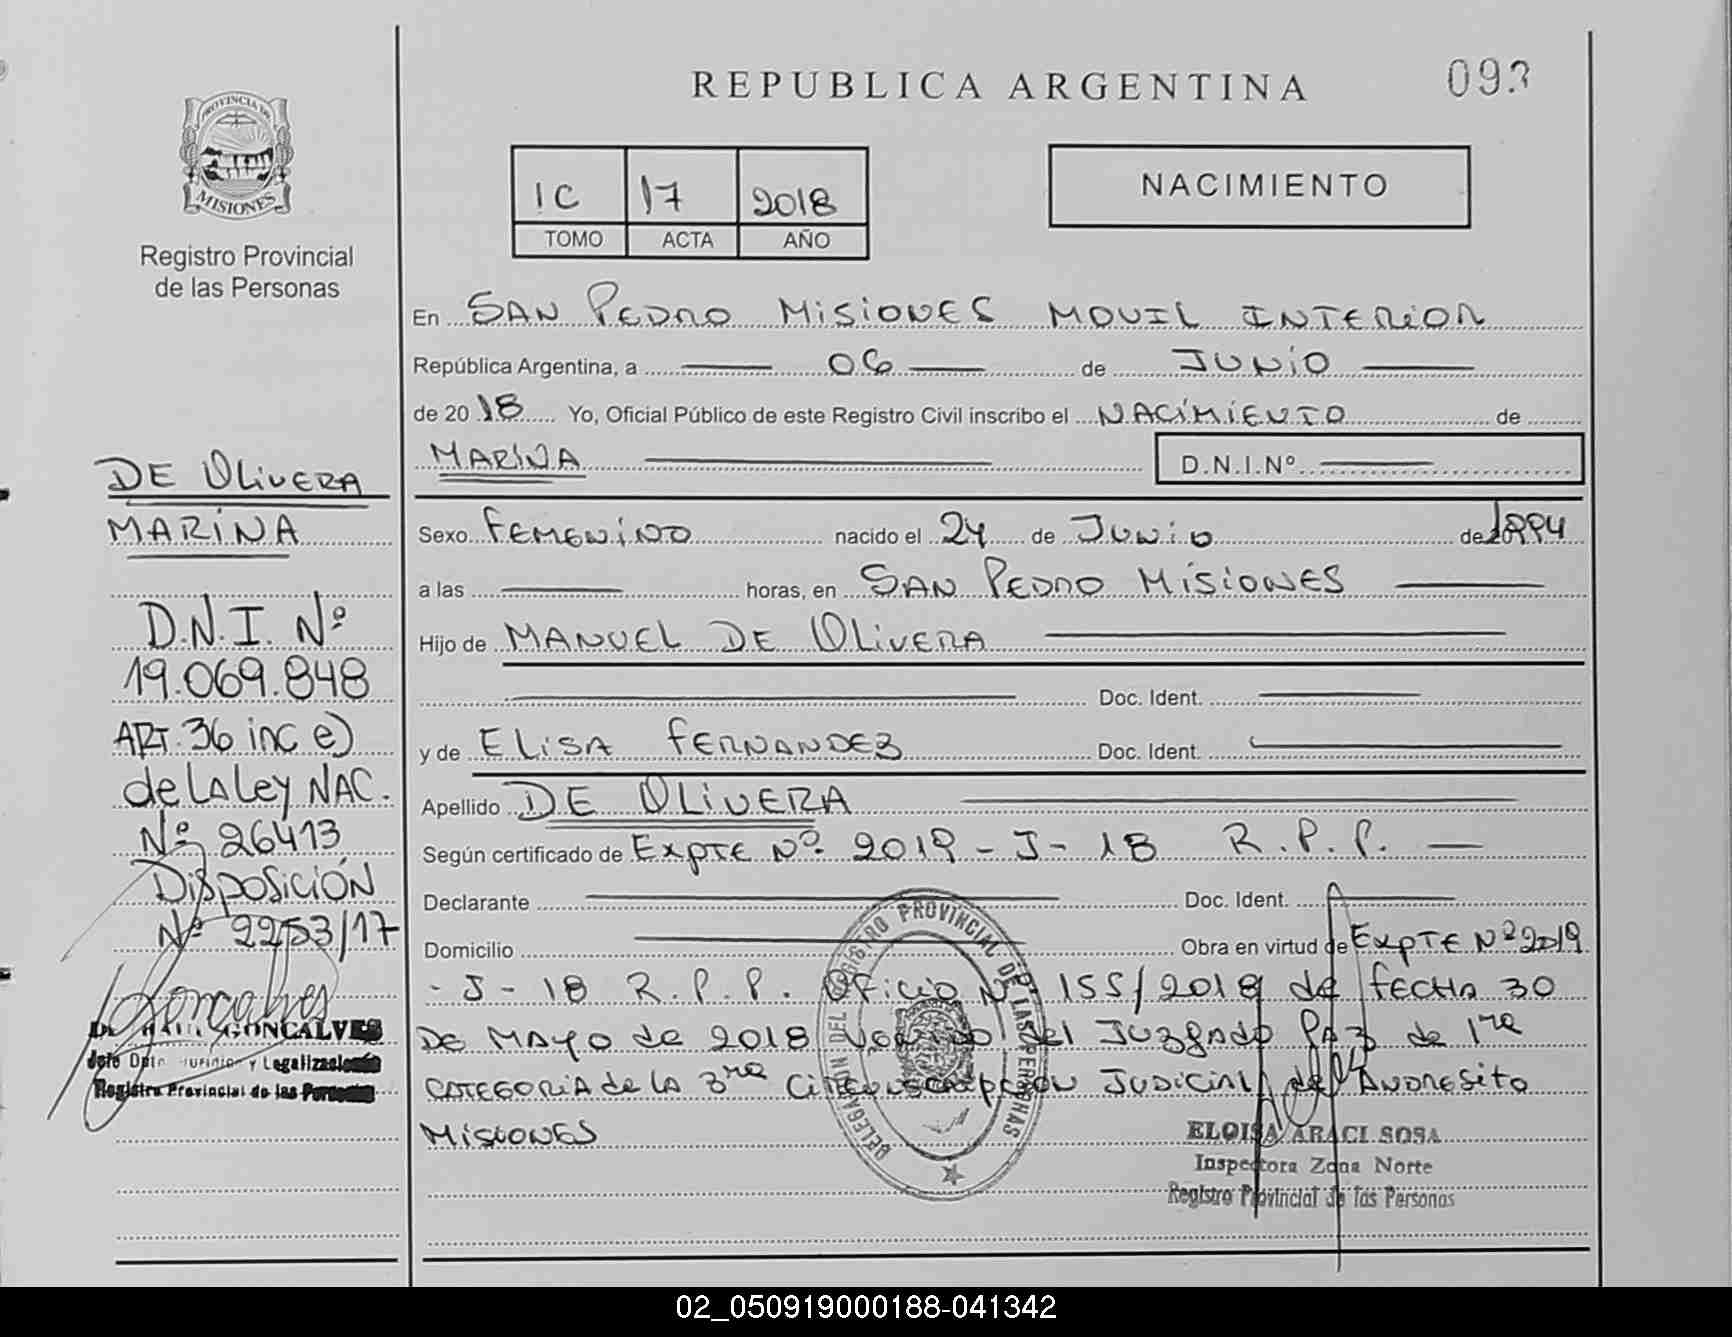 REPUBLICA ARGENTINA
093
PROVINCIA DE
MISIONES
Registro Provincial
de las Personas
1C 17 2018
TOMO ACTA AÑO
NACIMIENTO
En SAN PEDRO MISIONES MOVIL INTERIOR
República Argentina, a 06 de JUNIO
de 2018 Yo, Oficial Público de este Registro Civil inscribo el NACIMIENTO de
MARINA D.N.I.Nº
Sexo FEMENINO nacido el 24 de JUNIO de 1994
a las horas, en SAN PEDRO MISIONES
Hijo de MANUEL DE OLIVERA
Doc. Ident.
y de ELISA FERNANDEZ Doc. Ident.
Apellido DE OLIVERA
Según certificado de EXPTE Nº 2019 - J - 18 R.P.P.
Declarante Doc. Ident.
Domicilio Obra en virtud de EXPTE Nº 2019
- J - 18 R.P.P. Oficio Nº 155/2018 de fecha 30
DE MAYO de 2018 del JUZGADO PAZ de 1ra
CATEGORIA de LA 3ra CIRCUNSCRIPCION JUDICIAL de ANDRESITO
MISIONES
DELEGACION DEL REGISTRO PROVINCIAL DE LAS PERSONAS
ELOISA ARACI SOSA
Inspectora Zona Norte
Registro Provincial de las Personas
DE OLIVERA
MARINA
D.N.I. Nº
19.069.848
ART. 36 inc e)
de La Ley NAC.
Nº 26413
DISPOSICIÓN
Nº 2253/17
GONCALVES
Jefe Dpto. Jurídico y Legalizaciones
Registro Provincial de las Personas
02_050919000188-041342